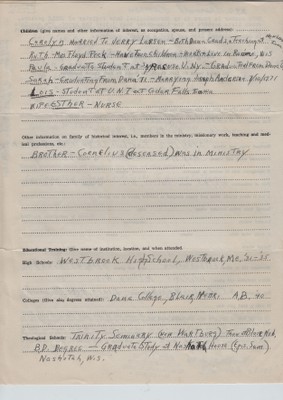 Children (give names and other information of interest, as occupation, spouse, and present address):
CAROLYN IS MARRIED TO JERRY LARSEN - Both Dana Grads - Teaching at
RUTH - Mrs Floyd Peck - Have two children - Working live in Racine, WIS
PAULA - GRADUATE STUDENT at SYRACUSE U. NY. - GRADUATED FROM DANA
SARAH - Graduating From Dana '71 - Marrying Joseph Anderson 1971
LOIS - Student at U.N.I. at Cedar Falls Iowa
WIFE ESTHER - NURSE
Other information on family of historical interest, i.e., members in the ministry, missionary work, teaching and medical professions, etc.:
BROTHER - CORNELIUS (deceased) WAS IN MINISTRY
Educational Training: Give name of institution, location, and when attended.
High Schools: WESTBROOK High School, Westbrook, Me, '31-'35.
Colleges (Give also degrees attained): Dana College, Blair, Nebr. A.B. 40
Theological Schools: Trinity Seminary (now Wartburg) Then at Blair, Neb.
B.D. Degree - Graduate Study at Nashotah House (Eps. Sem.)
Nashotah, Wis.